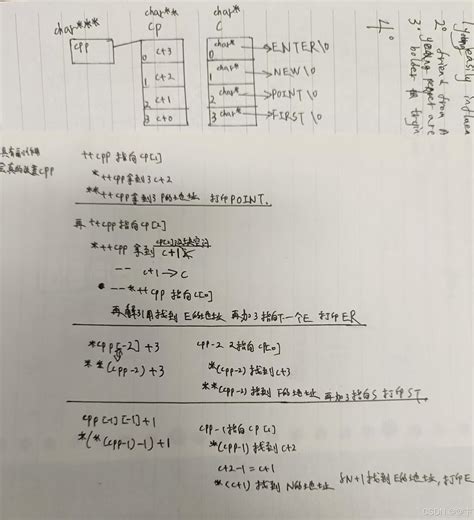 char***
char**
char*
cp
c
cpp
0 c+3
1 c+2
2 c+1
3 c+0
0 char* → ENTER\0
1 char* → NEW\0
2 char* → POINT\0
3 char* → FIRST\0
easily influen
2° friend from A
3° young people are
4°
++cpp 指向 cp[1]
*++cpp 拿到 c+2
**++cpp 拿到 P的地址 打印POINT.
再 ++cpp 指向 cp[2]
*++cpp 拿到 c+1
-- c+1 → c
* -- *++cpp 指向 c[0]
再解引用找到 E的地址 再加3指向下一个E 打印ER
*cpp[-2]+3 cpp-2 指向 cp[0]
**(cpp-2)+3 *(cpp-2) 找到 c+3
**(cpp-2) 找到 F的地址 再加3指向S 打印ST.
cpp[-1][-1]+1 cpp-1指向 cp[1]
*(*(cpp-1)-1)+1 *(cpp-1) 找到 c+2
c+2-1 = c+1
*(c+1) 找到 N的地址 &N+1找到E的地址, 打印E